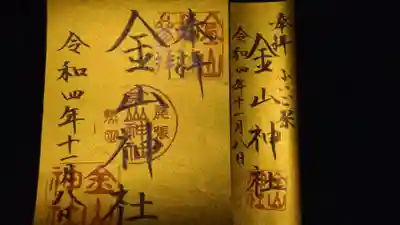 奉拝 ふいご祭
金山神社
令和四年十一月八日
奉拝
金山神社
令和四年十一月八日
尾張
金山神社